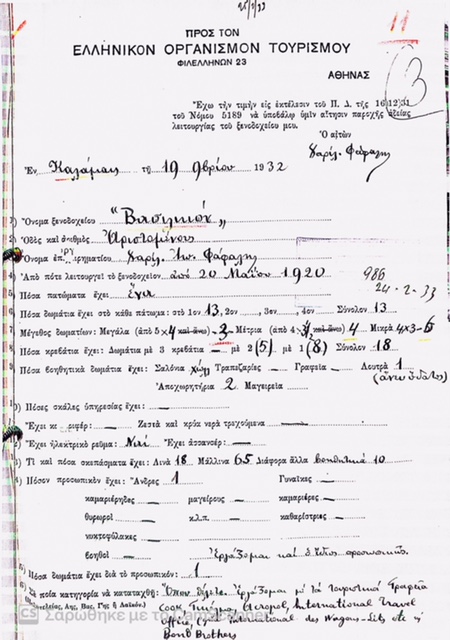 25/2/33
11
ΠΡΟΣ ΤΟΝ
ΕΛΛΗΝΙΚΟΝ ΟΡΓΑΝΙΣΜΟΝ ΤΟΥΡΙΣΜΟΥ
ΦΙΛΕΛΛΗΝΩΝ 23
ΑΘΗΝΑΣ
3
Ἔχω τὴν τιμὴν εἰς ἐκτέλεσιν τοῦ Π. Δ. τῆς 16)12)31
τοῦ Νόμου 5189 νὰ ὑποβάλω ὑμῖν αἴτησιν παροχῆς ἀδείας
λειτουργίας τοῦ ξενοδοχείου μου.
Ὁ αἰτῶν
Χαρίλ. Φάραλης
Ἐν Καλάμαις τῇ 19 9βρίου 1932
1) Ὄνομα ξενοδοχείου "Βασιλικόν"
2) Ὁδὸς καὶ ἀριθμὸς Ἀριστομένους
Ὄνομα ἐπιχειρηματίου Χαρίλ. Ἰω. Φάραλης
4) Ἀπὸ πότε λειτουργεῖ τὸ ξενοδοχεῖον ἀπὸ 20 Μαΐου 1920
986
24-2-33
5) Πόσα πατώματα ἔχει Ἕνα
6) Πόσα δωμάτια ἔχει στὸ κάθε πάτωμα: στὸ 1ον 13, 2ον , 3ον , 4ον Σύνολον 13
7) Μέγεθος δωματίων: Μεγάλα (ἀπὸ 5×4 καὶ ἄνω) -3- Μέτρια (ἀπὸ 4× καὶ ἄνω) 4 Μικρὰ 4×3-6
8) Πόσα κρεβάτια ἔχει: Δωμάτια μὲ 3 κρεβάτια — μὲ 2 (5) μὲ 1 (8) Σύνολον 18
9) Πόσα βοηθητικὰ δωμάτια ἔχει: Σαλόνια Χωλ Τραπεζαρίες — Γραφεῖα — Λουτρὰ 1
(ἄνευ ὕδατος)
Ἀποχωρητήρια 2 Μαγειρεῖα
10) Πόσες σκάλες ὑπηρεσίας ἔχει: —
Ἔχει καλοριφέρ: — Ζεστὰ καὶ κρύα νερὰ τρεχούμενα —
12) Ἔχει ἠλεκτρικὸ ρεῦμα: Ναί Ἔχει ἀσσανσέρ: —
13) Τί καὶ πόσα σκεπάσματα ἔχει: Λινὰ 18 Μάλλινα 65 Διάφορα ἄλλα βοηθητικά 10
14) Πόσον προσωπικὸν ἔχει: Ἄνδρες 1 Γυναῖκες —
καμαριέρηδες — μαγείρους — καμαριέρες —
θυρωροὶ — κ.λ.π. — καθαρίστριες —
νυκτοφύλακες —
βοηθοὶ — Ἐργάζομαι καὶ ὁ ἴδιος προσωπικῶς
15) Πόσα δωμάτια ἔχει διὰ τὸ προσωπικόν: 1
Σὲ ποία κατηγορία νὰ καταταχθῇ: Ὅπου θέλετε. Ἐργάζομαι μὲ τὰ τουριστικὰ Γραφεῖα
(Πολυτελείας, Αης, Βας, Γης ἢ Λαϊκόν.) Cook, Γκιόλμαν, Aeropol, International Travel
Office, International des Wagons-Lits
Bond Brothers
Σαρώθηκε με το CamScanner